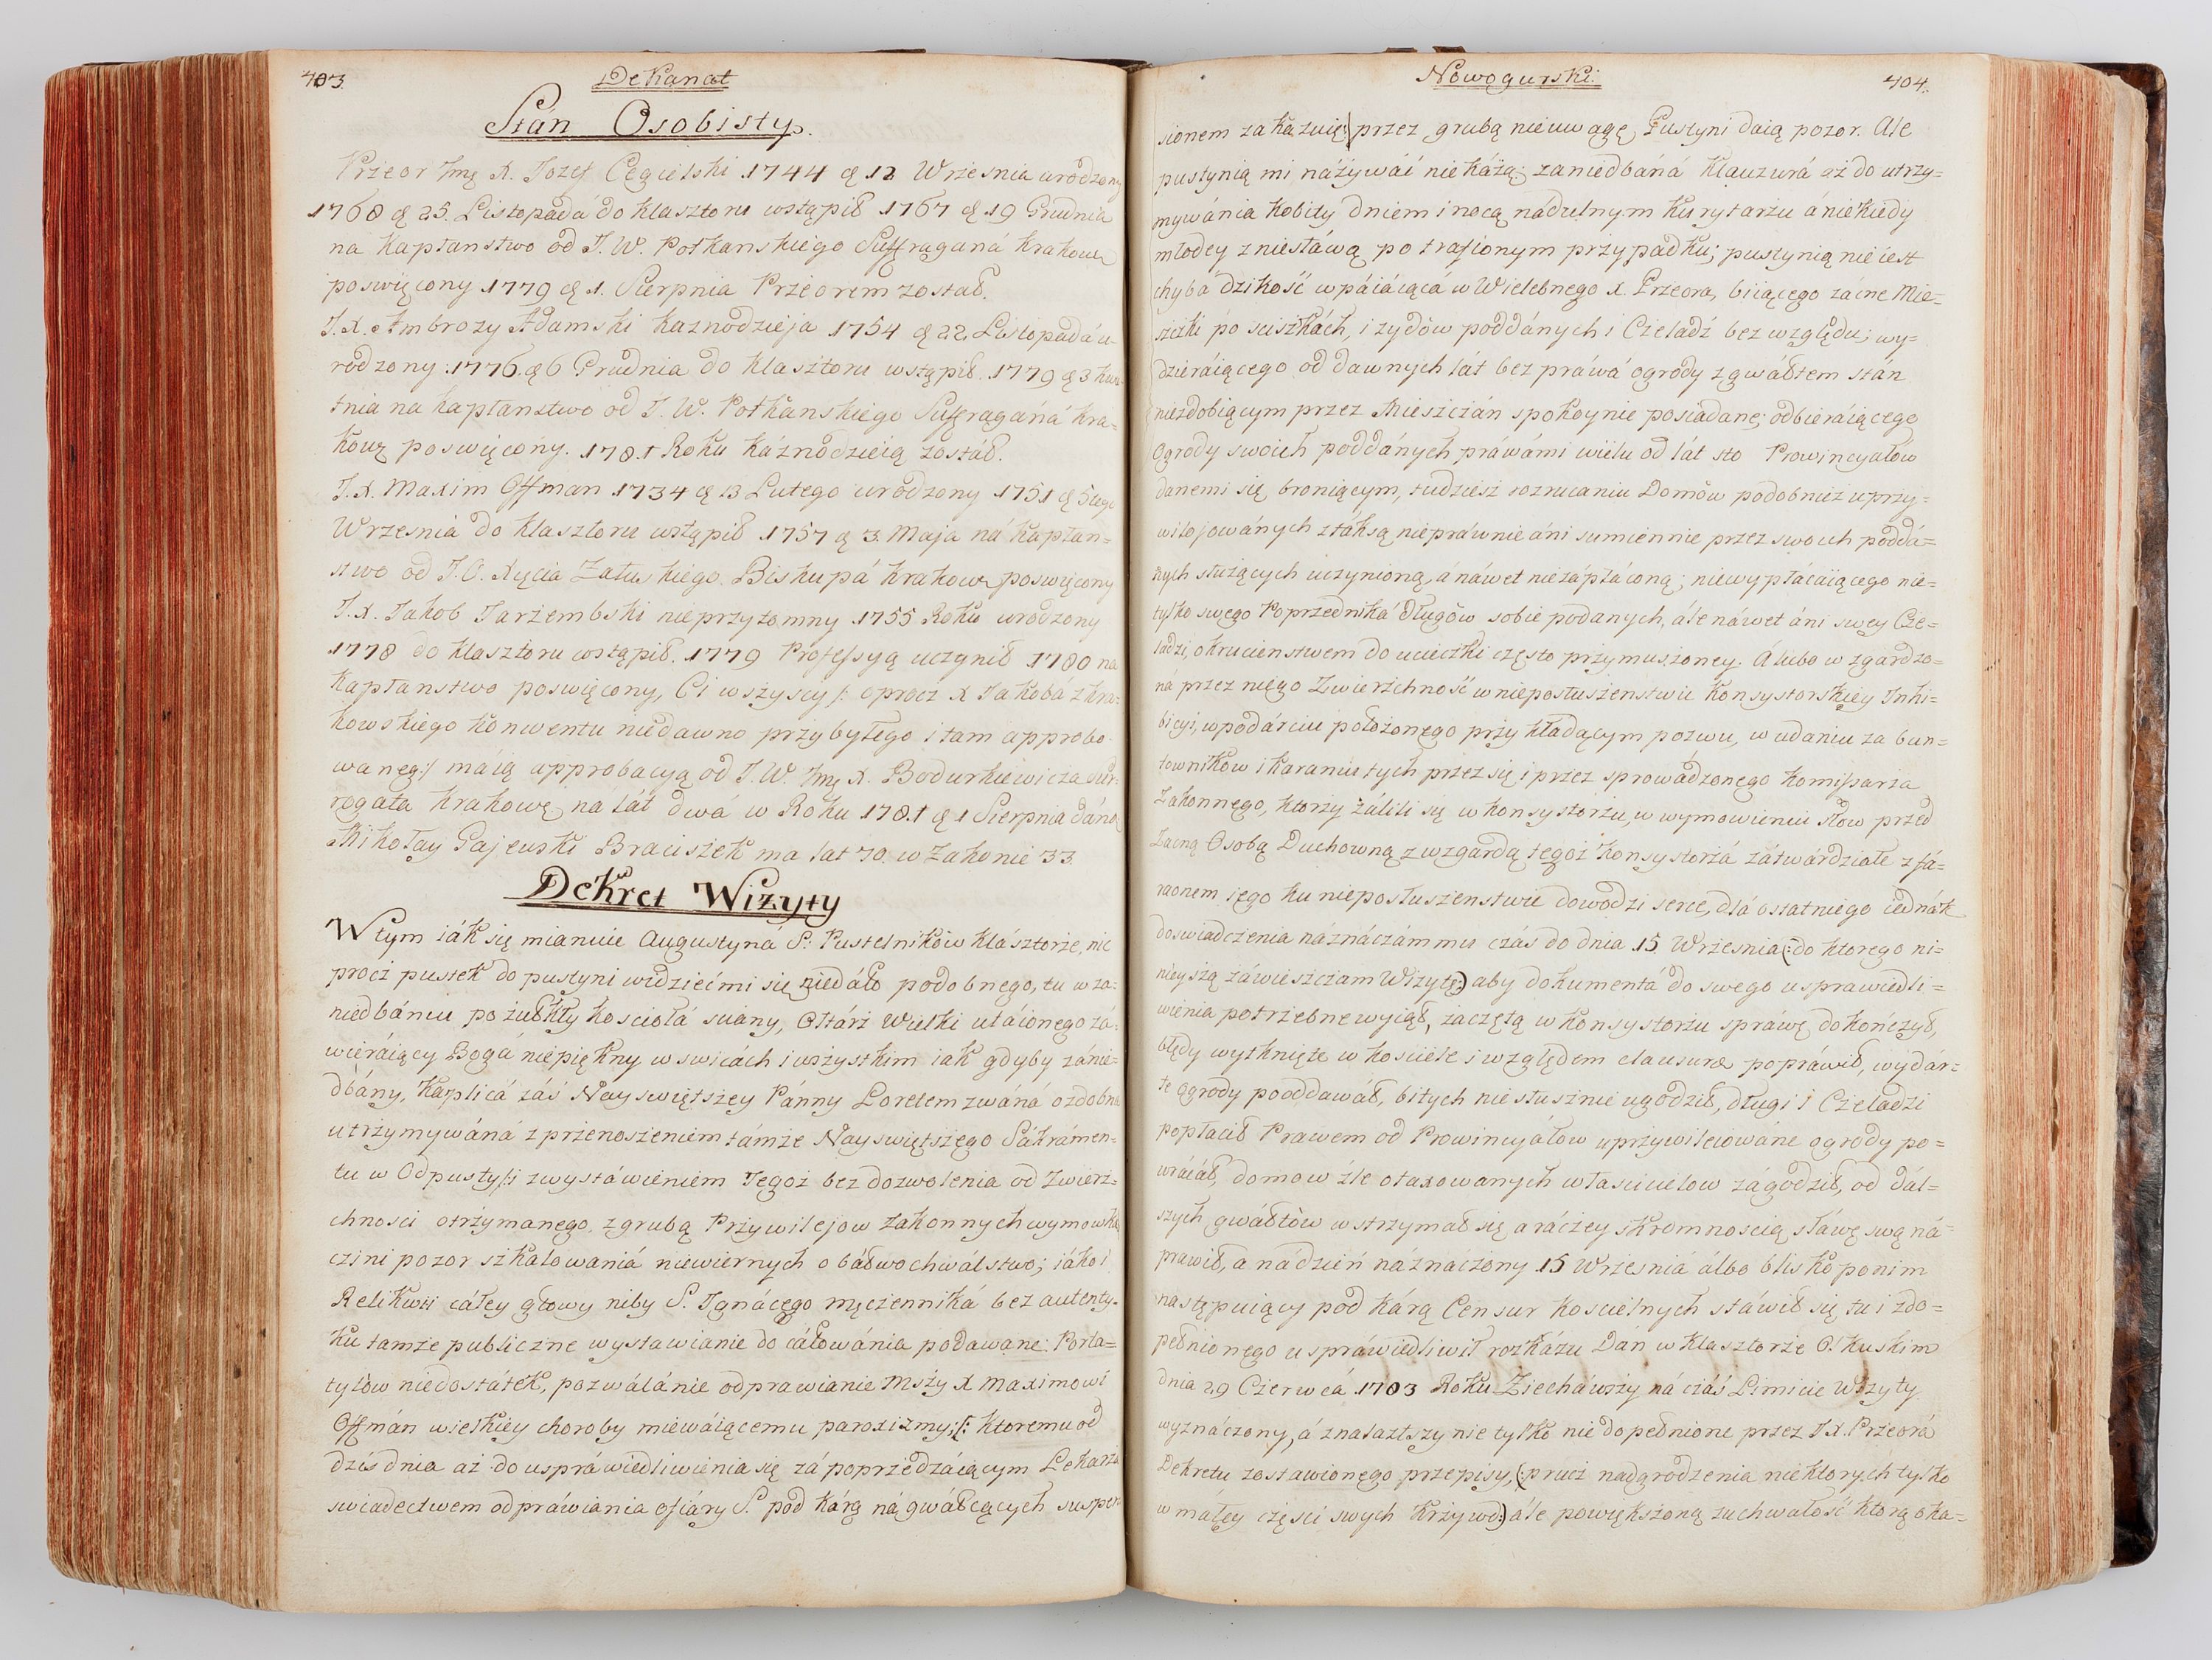 403.
Dekanat
Stán Osobisty.
Przeor Jmę X. Jozef Cęgielski 1744 ą 12 Wrzesnia urodzony
1768 ą 25. Listopadá do klasztoru wstąpił 1767 ą 19 Grudnia
na Kapłanstwo od J. W. Potkanskiego Suffraganá krakow
poswięcony 1779 ą 1. Sierpnia Przeorem został.
J. X. Ambrozy Adamski kaznodzieja 1754 ą 22 Listopadá u-
rodzony. 1776. ą 6 Grudnia do klasztoru wstąpił. 1779 ą 3 kwie
tnia na kapłanstwo od J. W. Potkanskiego Suffragáná kra-
kowę poswięcony. 1781 Roku káznodzieią zostáł.
J. X. Maxim Offman 1734 ą 13 Lutego urodzony 1751 ą 5tego
Wrzesnia do klasztoru wstąpił 1757 ą 3. Maja ná kapłan-
stwo od J. O. Xięcia Załuskiego Biskupá krakow poswięcony
J. X. Jakob Jarzembski nieprzytomny 1755 Roku urodzony
1778 do klasztoru wstąpił. 1779 Professyą uczynił 1780 na
kapłanstwo poswięcony, Ci wszyscy /: oprocz X Jakobá z kra-
kowskiego konwentu niedawno przybyłego i tam approbo-
wanęg:/ máią approbacyą od J. W. Jmę X. Bodurkiewicza sur-
rogata krakowę na lát dwá w Roku 1781 ą 1 Sierpnia dáną
Mikołay Gajewski Braciszek ma lat 70. w Zakonie 33.
Dekret Wizyty
W tym iák się mianuie Augustyná S: Pustelników klásztorze, nic
procz pustek do pustyni widzieć mi się niedáło podobnego, tu w za-
niedbániu pozułkły kościołá sciany, Ołtárz Wielki utáionego zá-
wieráiący Bogá niepiękny w swicách i wszystkim iak gdyby zánie-
dbány, kaplicá záś Nayswiętszey Pánny Loretem zwáná ozdobnie
utrzymywáná z przenoszeniem támże Nayswiętszego Sákrámen-
tu w Odpusty /:i z wystáwieniem Tegoż bez dozwolenia od Zwierz-
chnosci otrzymanego. z grubą Przywilejow Zakonnych wymowką
czini pozor szkalowaniá niewiernych o báłwochwálstwo; iáko i
Relikwii cáłey głowy niby S. Ignácęgo męczenniká bez autenty-
ku tamże publiczne wystawianie do cáłowánia podawane: Porta-
tylow niedostátek, pozwálánie odprawianie Mszy X Maximowi
Offmán wielkiey choroby miewáiącemu paroxizmy; /: ktoremu od
dziś dnia aż do usprawiedliwienia się zá poprzedzáiącym Lekarza
swiadectwem odpráwiania ofiáry S. pod kárą ná gwáłcących suspen
Nowogurski:
404.
sionem zakazuię:/ przez grubą nieuwagę, Pustyni daią pozor. Ale
pustynią mi názywáć nie káżą: zaniedbáná Klauzurá aż do utrzy-
mywánia kobity dniem i nocą ná dulnym kurytarzu á niekiedy
młodey z niesłáwą po trafionym przypadku; pustynią nie iest
chybá dzikość wpáiáiącá w Wielebnego X. Przeora, biiącego zacne Mie-
szczki po sciszkách, i zydów poddánych i Czeladź bez względu; wy-
dzieráiącego od dawnych lát bez práwá ogrody z gwáłtem stán
niezdobiącym przez Mieszczán spokoynie posiadane; odbieráiącego
Ogrody swoich poddánych práwámi wielu od lát sto Prowincyałow
danemi się broniącym, tudziesz rozrucaniu Domów podobnież uprzy-
wilojowánych z táksą nieprawnie áni sumiennie przez swoich poddá-
nych służących uczynioną, á náwet niezápłáconą; niewypłácaiącego nie-
tylko swego Poprzedniká długów sobie podanych, ále náwet áni swey Cze-
ladzi, okrucienstwem do ucieczki często przymuszoney. A lubo wzgardzo-
ná przez niego Zwierzchność w nieposłuszenstwie konsystorskiey Inhi-
bicyi, w podárciu położonego przy kładącym pozwu, w udaniu za bun-
towników i karaniu tych przez się i przez sprowádzonego komissarza
Zakonnęgo, ktorzy żálili się w konsystorzu, w wymowieniu słow przed
Zacną Osobą Duchowną z wzgardą tegoż konsystorzá zátwárdziałe z fá-
raonem iego ku nieposłuszenstwie dowodzi serce, dlá ostatniego iednák
doswiadczenia náznáczám mu czás do dnia 15 Wrzesnia (: do ktorego ni-
nieyszą záwieszczam Wizytę:) aby dokumentá do swego usprawiedli-
wienia potrzebne wyiął, zaczętą w konsystorzu spráwę dokończył,
błędy wythnięte w kosciele i względem clausuræ popráwił, wydár-
te ogrody pooddawáł, bitych niesłusznie ugodził, długi i Czeladzi
popłacił Prawem od Prowincyáłow uprzywileiowáne ogrody po-
wráćáł, domow źle otaxowanych własciicielow zágodził, od dál-
szych gwáłtów wstrzymał się a ráczey skromnoscią słáwę swą ná-
prawił, a ná dzień náznaczony 15 Wrzesniá álbo blisko po nim
następuiący pod kárą Censur koscielnych stáwił się tu i zdo-
pełnionego uspráwiedliwił rozkázu Dan w klasztorze Olkuskim
dnia 29 Czerwcá 1783 Roku Ziechawszy ná cząs Limicie Wizyty
wyznáczony, á znalazłszy nie tylko niedopełnione przez J. X. Przeorá
Dekretu zostawionęgo przepisy, (: prucz nadgrodzenia niektorych tylko
w máłey częsci swych krzywd:) ále powiększoną zuchwałość ktorą oka-